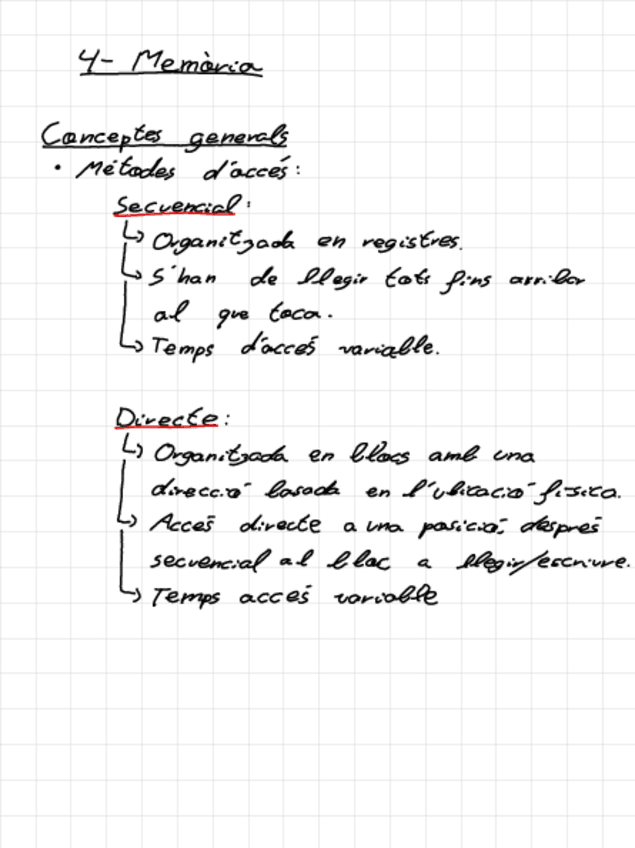 4- Memòria
Conceptes generals
• Métodes d'accés:
Secuencial:
↳ Organitzada en registres.
↳ S'han de llegir tots fins arribar
al que toca.
↳ Temps d'accés variable.
Directe:
↳ Organitzada en blocs amb una
direcció basada en l'ubicació física.
↳ Accés directe a una posició, després
secuencial al bloc a llegir/escriure.
↳ Temps accés variable